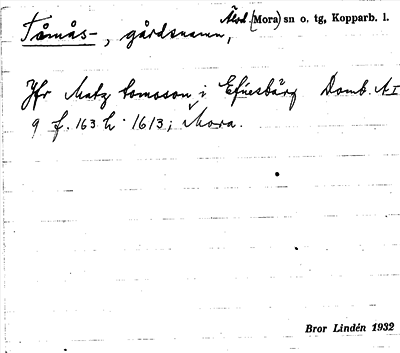 Tåmås-, gårdsnamn, Älvd. (Mora) sn o. tg, Kopparb. l.
Jfr Matz tomsson i Efuesbärg Domb. AI
9 f. 163 h. 1613; Mora.
Bror Lindén 1932